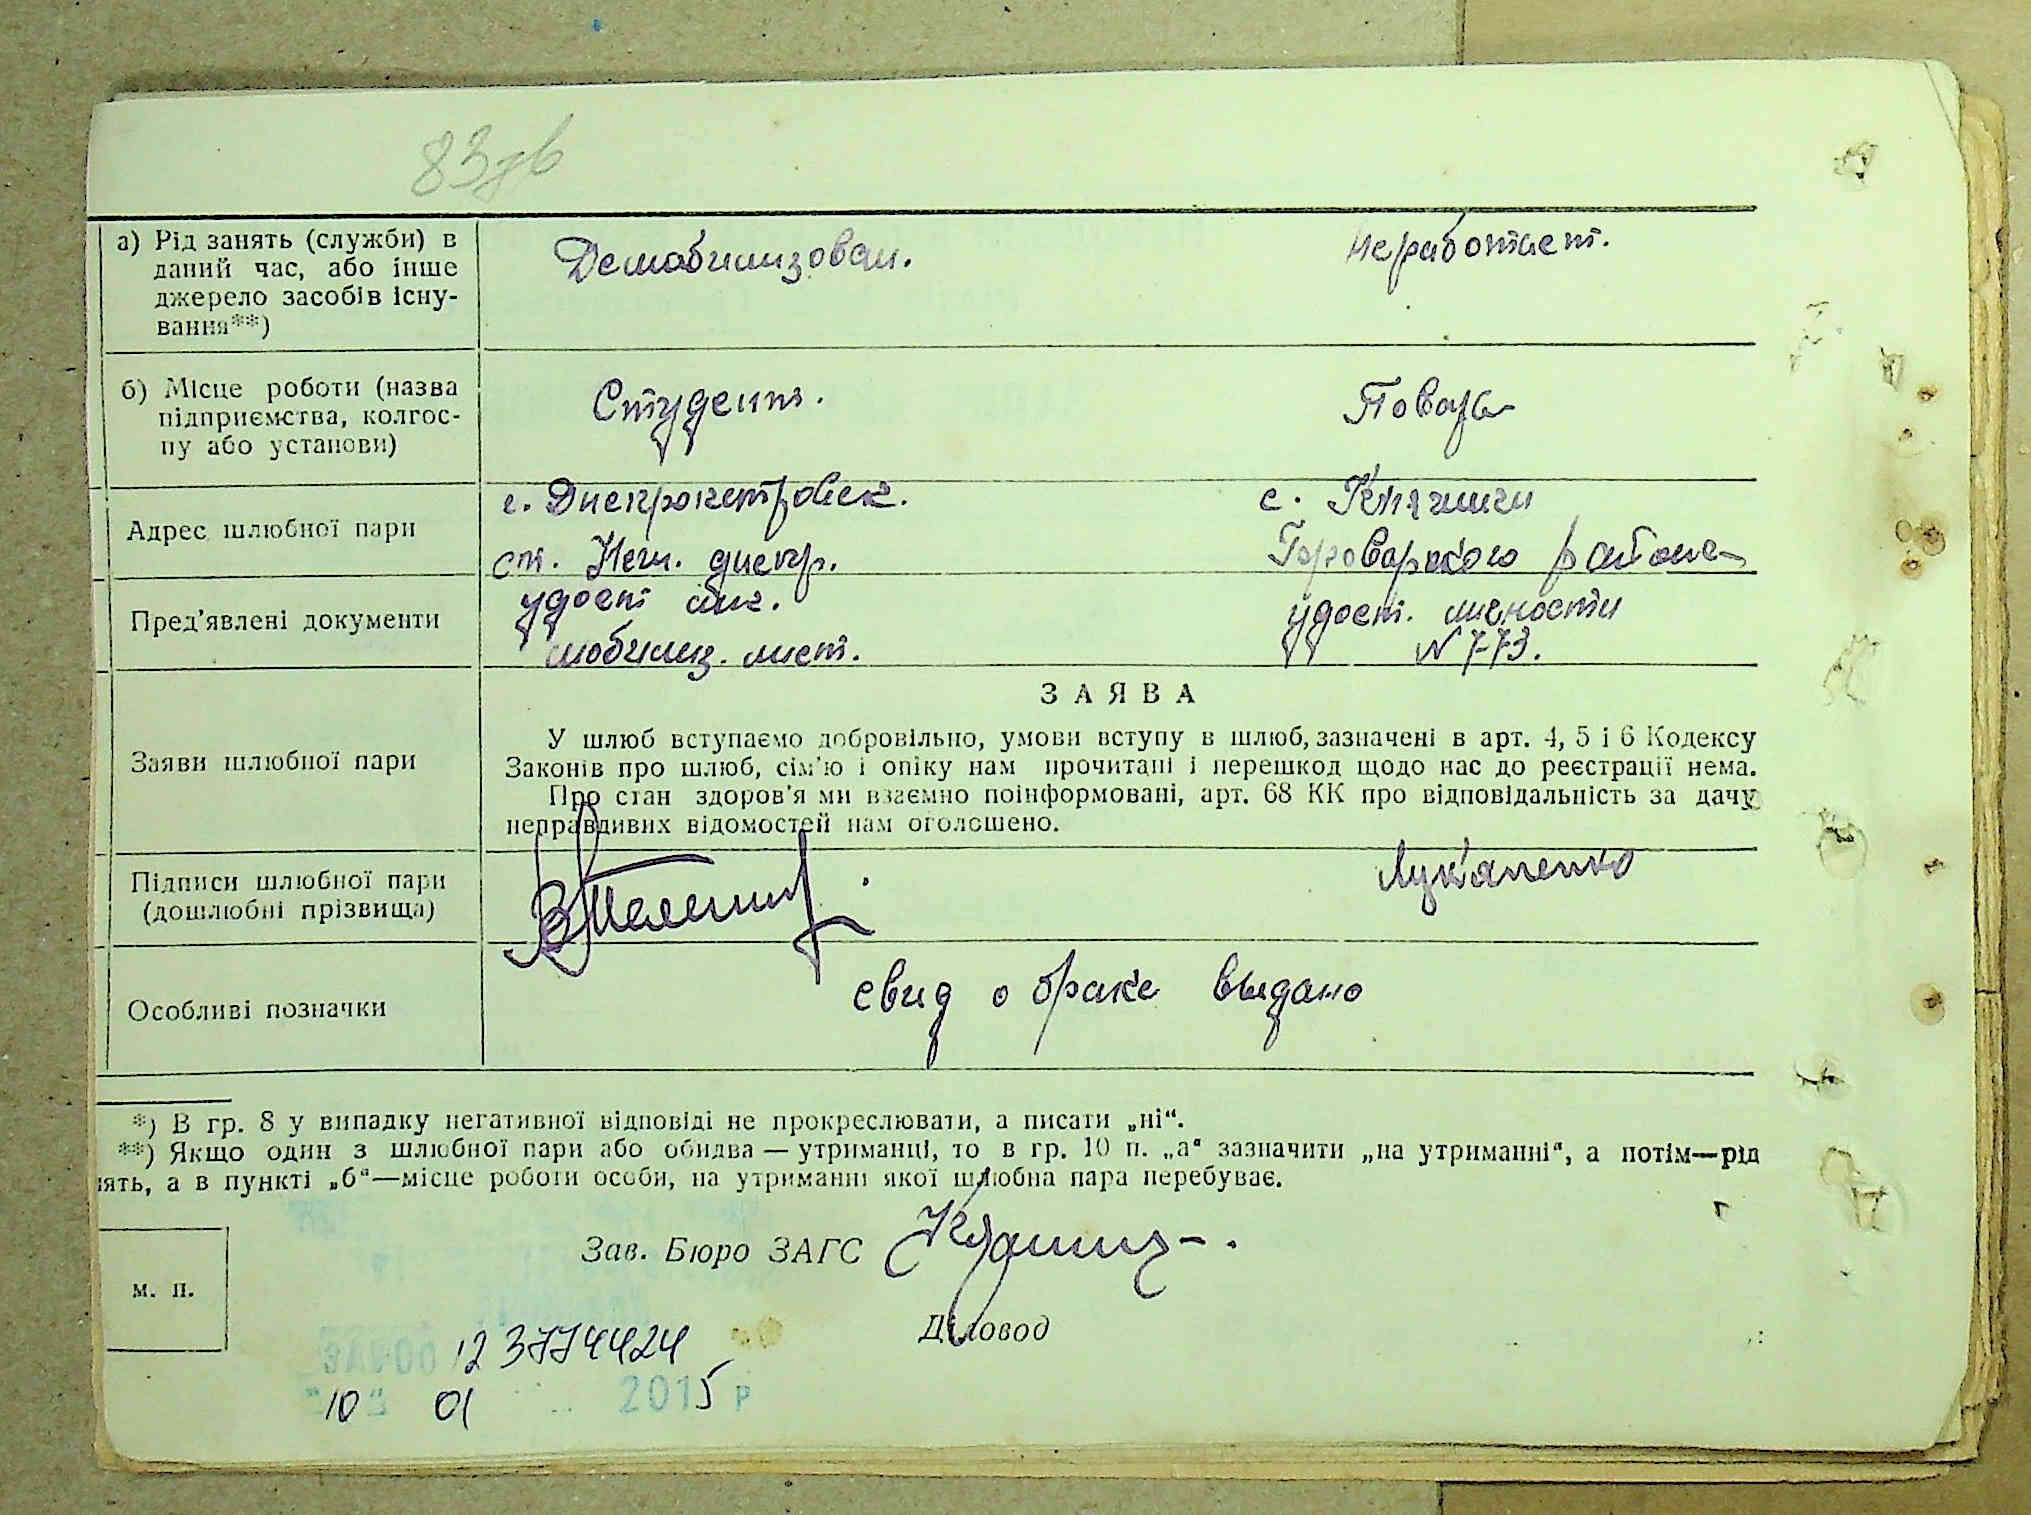 83зв
а) Рід занять (служби) в
даний час, або інше
джерело засобів існу-
вання**)
Демобилизован.
Неработает.
б) Місце роботи (назва
підприємства, колгос-
пу або установи)
Студент.
Поваръ
Адрес шлюбної пари
г. Днепропетровск.
ст. Нижн. днепр.
с. Княжичи
Броварского района
Пред’явлені документи
удост лич.
мобилиз. лист.
удост. личности
№ 773.
Заяви шлюбної пари
ЗАЯВА
У шлюб вступаємо добровільно, умови вступу в шлюб, зазначені в арт. 4, 5 і 6 Кодексу
Законів про шлюб, сім’ю і опіку нам прочитані і перешкод щодо нас до реєстрації нема.
Про стан здоров’я ми взаємно поінформовані, арт. 68 КК про відповідальність за дачу
неправдивих відомостей нам оголошено.
Підписи шлюбної пари
(дошлюбні прізвища)
Лукяненко
Особливі позначки
свид о браке выдано
*) В гр. 8 у випадку негативної відповіді не прокреслювати, а писати „ні“.
**) Якщо один з шлюбної пари або обидва — утриманці, то в гр. 10 п. „а“ зазначити „на утриманні“, а потім—рід
нять, а в пункті „б“—місце роботи особи, на утриманні якої шлюбна пара перебуває.
Зав. Бюро ЗАГС
м. п.
Діловод
12 3774424
"10" 01 2015 р